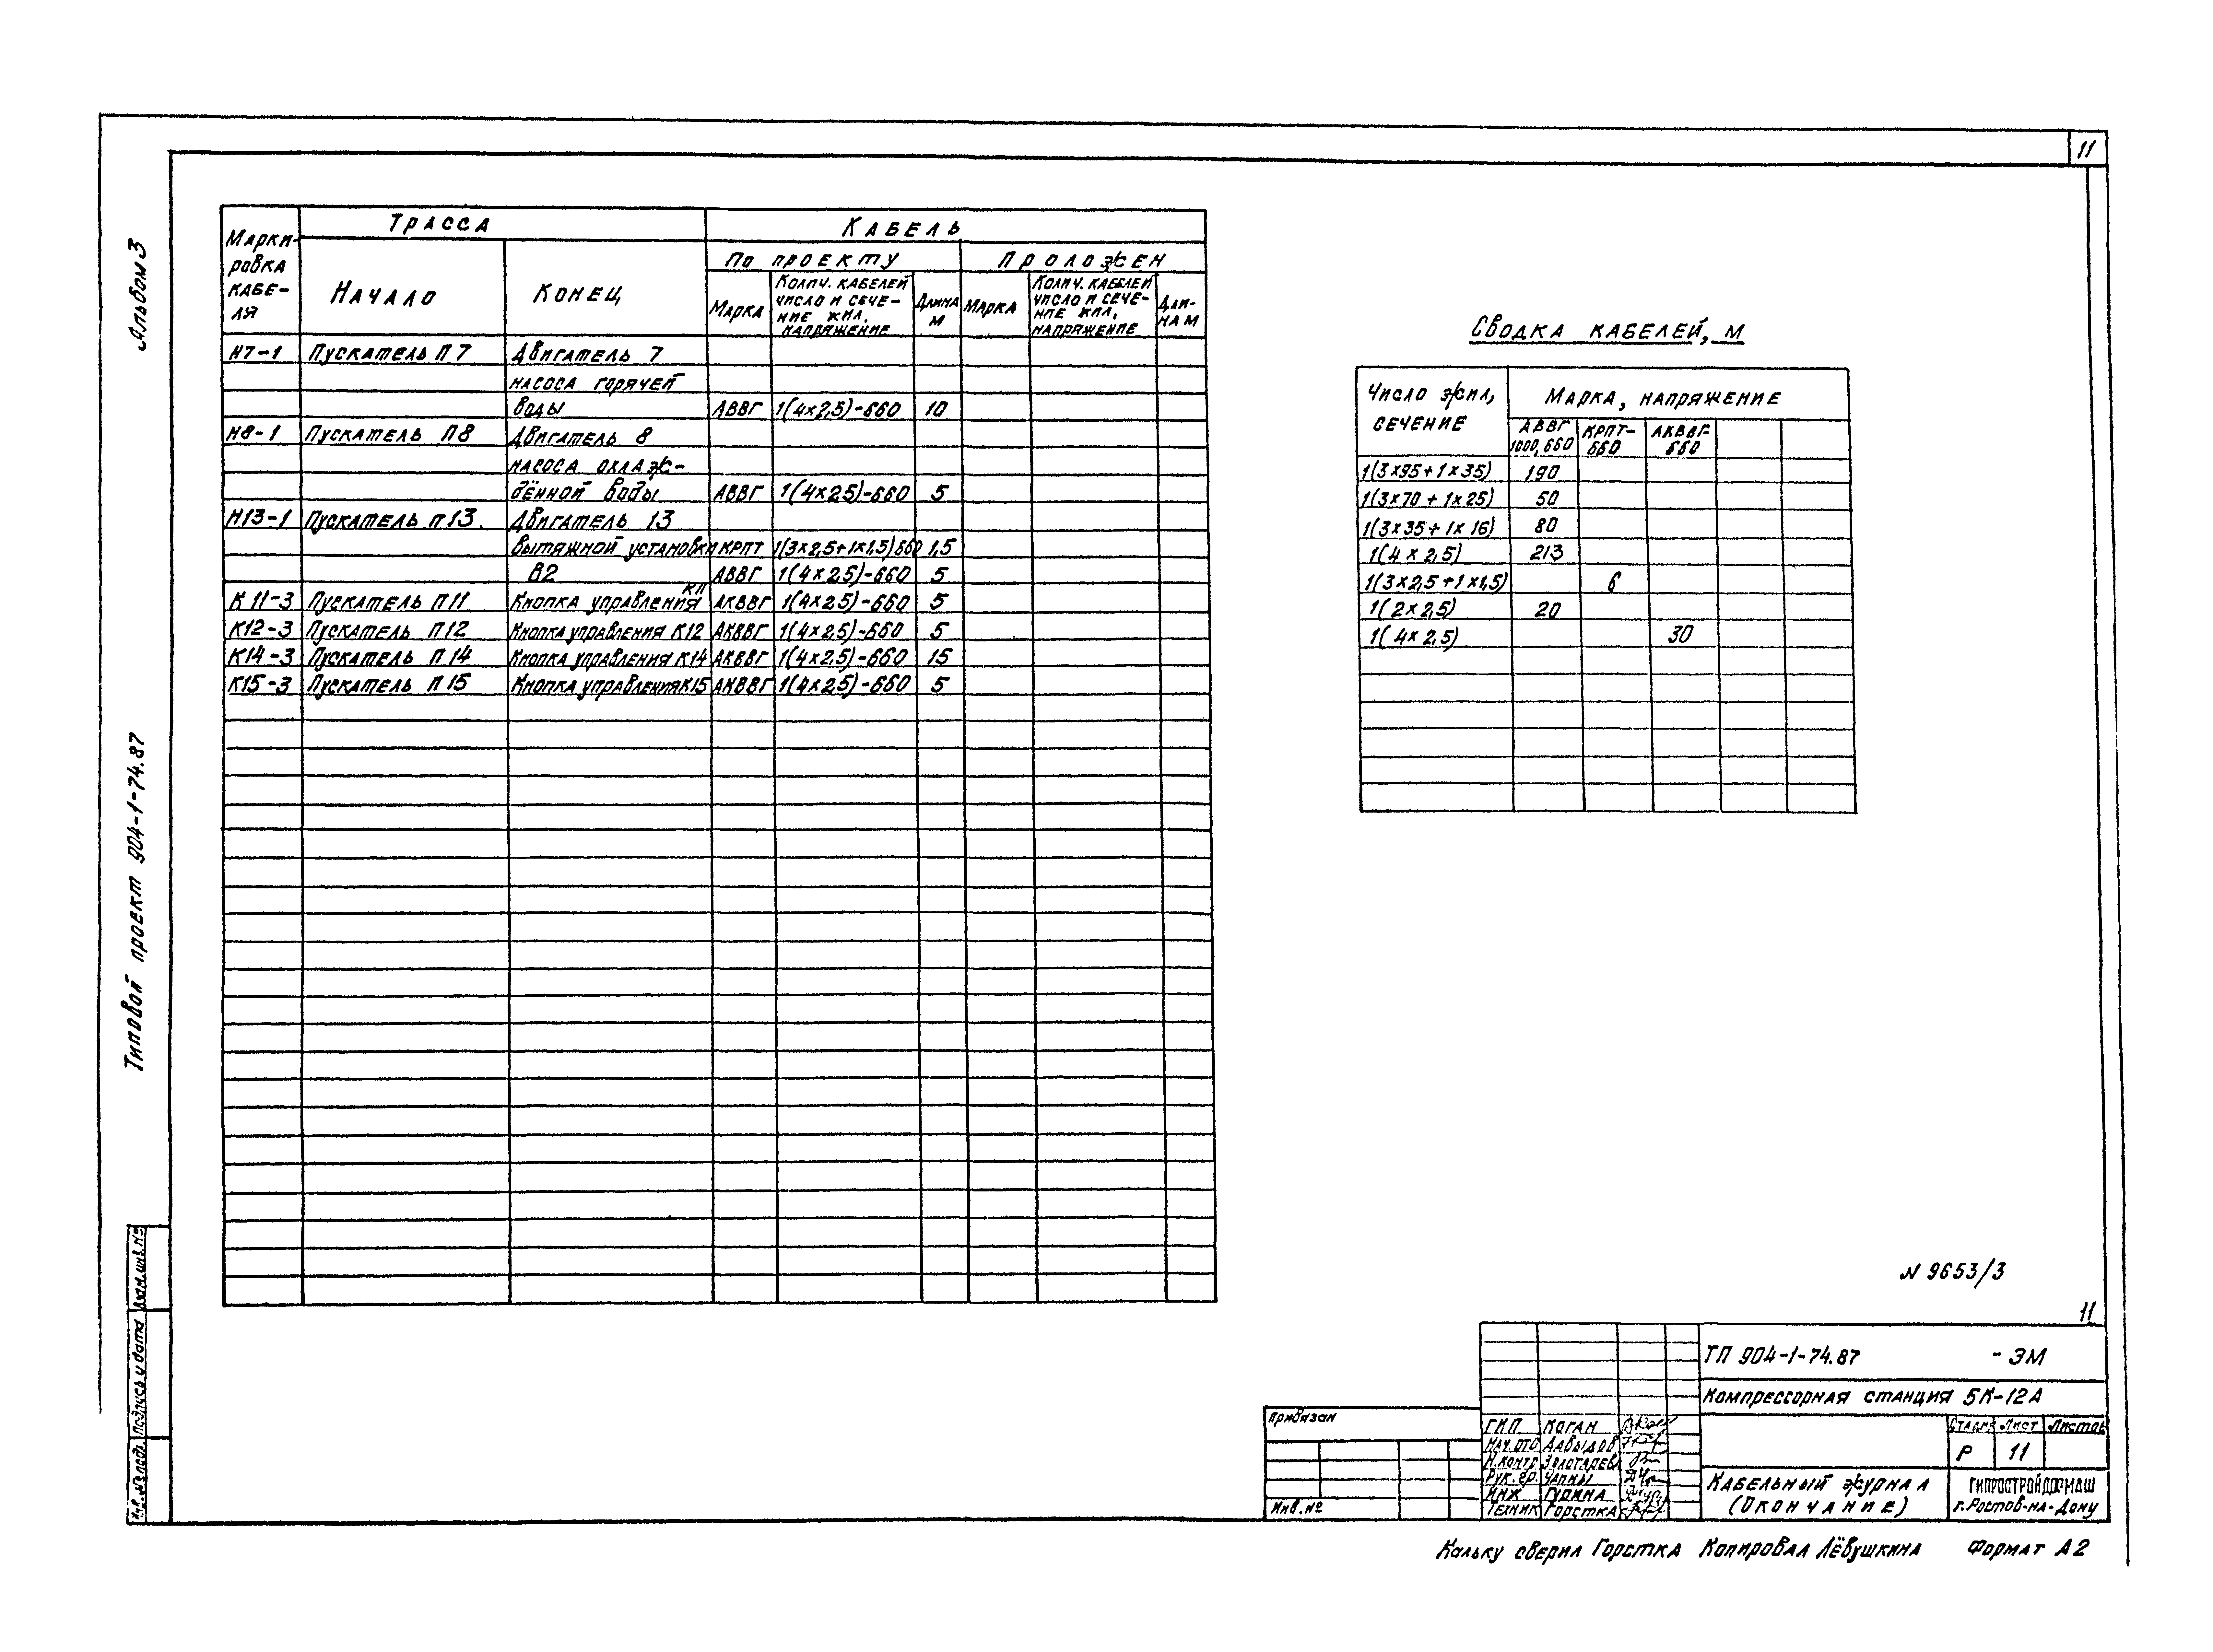 11
Альбом 3
Типовой проект 904-1-74.87
Взам. инв. №
Подпись и дата
Инв. № подл.
Маркировка кабеля
Трасса
Кабель
Начало
Конец
По проекту
Проложен
Марка
Колич. кабелей число и сечение жил, напряжение
Длина м
Марка
Колич. кабелей число и сечение жил, напряжение
Длина м
Н7-1 Пускатель П7 Двигатель 7
насоса горячей
воды АВВГ 1(4×2,5)-660 10
Н8-1 Пускатель П8 Двигатель 8
насоса охлаж-
дённой воды АВВГ 1(4×2,5)-660 5
Н13-1 Пускатель П13. Двигатель 13
вытяжной установки КРПТ 1(3×2,5+1×1,5)660 1,5
В2 АВВГ 1(4×2,5)-660 5
К11-3 Пускатель П11 Кнопка управления КП АКВВГ 1(4×2,5)-660 5
К12-3 Пускатель П12 Кнопка управления К12 АКВВГ 1(4×2,5)-660 5
К14-3 Пускатель П14 Кнопка управления К14 АКВВГ 1(4×2,5)-660 15
К15-3 Пускатель П15 Кнопка управления К15 АКВВГ 1(4×2,5)-660 5
Сводка кабелей, м
Число жил, сечение
Марка, напряжение
АВВГ 1000, 660
КРПТ-660
АКВВГ-660
1(3×95+1×35) 190
1(3×70+1×25) 50
1(3×35+1×16) 80
1(4×2,5) 213
1(3×2,5+1×1,5) 6
1(2×2,5) 20
1(4×2,5) 30
N 9653/3
11
ТП 904-1-74.87 -ЭМ
Компрессорная станция 5К-12А
Привязан
Инв. №
ГИП Коган
Нач. отд Давыдов
Н. контр Золотарев
Рук. гр.
Инж Гурина
Техник Горстка
Стадия Лист Листов
Р 11
Кабельный журнал
(Окончание)
Гипростройдормаш
г. Ростов-на-Дону
Кальку сверил Горстка Копировал Лёвушкина Формат А2